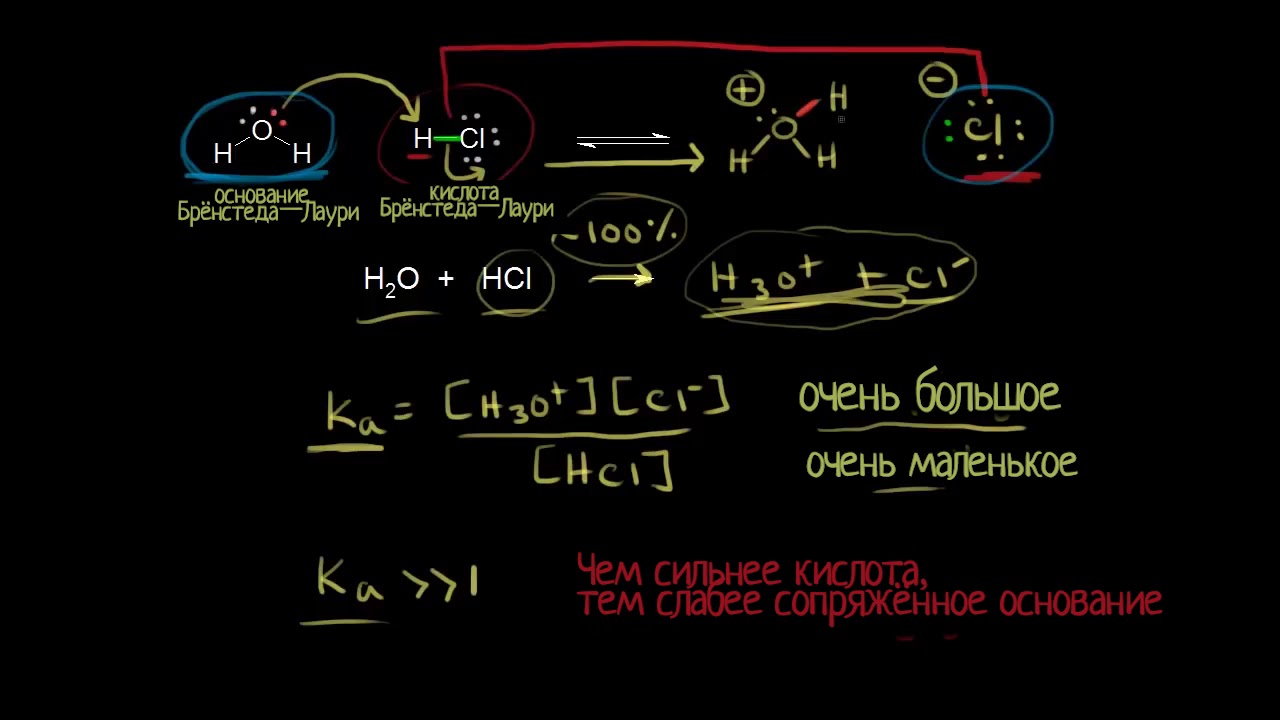 H O H H Cl ⇌ → ⊕ H O H H ⊖ Cl
основание
Брёнстеда—Лаури
кислота
Брёнстеда—Лаури
~100%
H₂O + HCl → H₃O⁺ + Cl⁻
Kₐ = [H₃O⁺][Cl⁻] / [HCl]
очень большое
очень маленькое
Kₐ >> 1
Чем сильнее кислота,
тем слабее сопряжённое основание